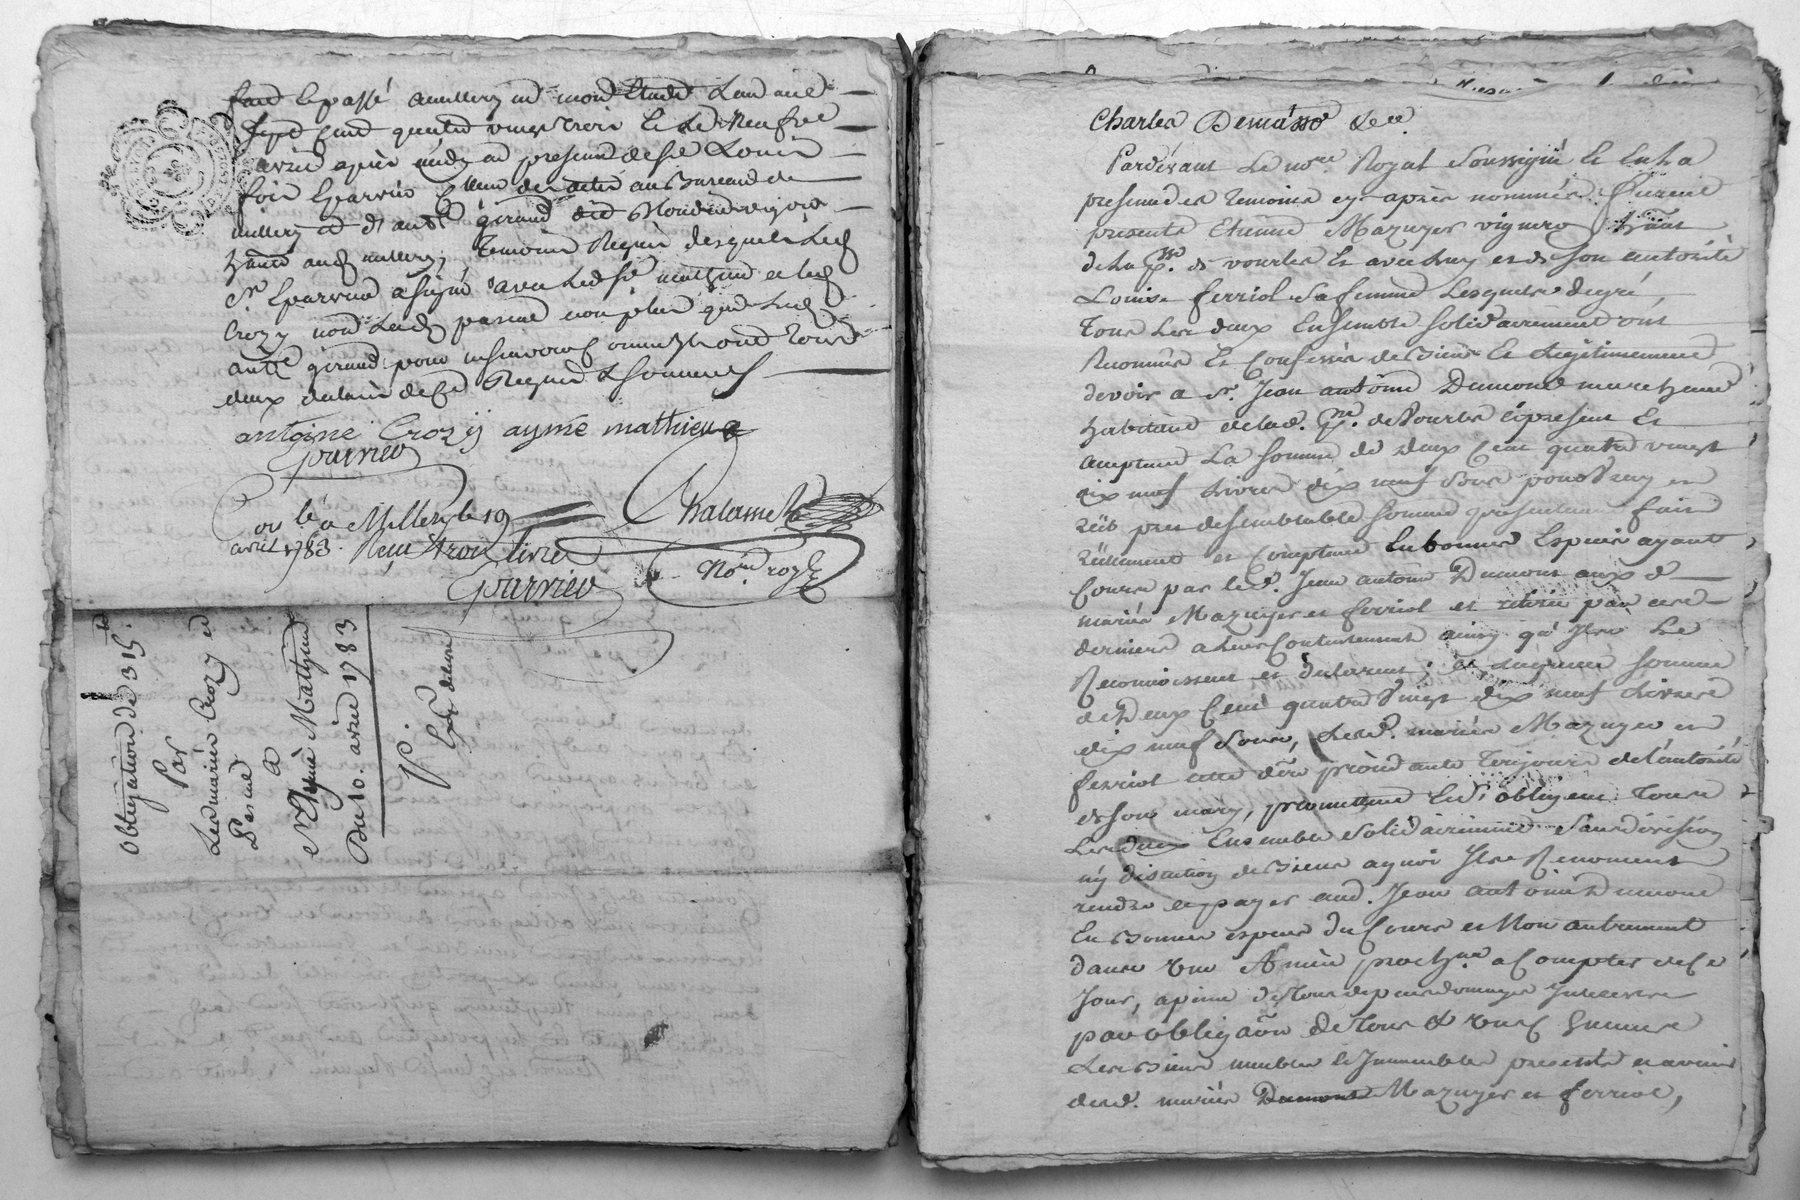 fait et passé a millery en mon Etude L'an mil
sept cent quatre vingt trois Et Le neuf
avril après midy en presence de Sr Louis
foix Eparvier des actes au Bureau de
millery et d'antne girard
habt aud millery, Temoins Requis Lesquels led
Sr Eparvier a signé avec led Sr mathieu et led
Crozy non lad pasme non plus que led
antne girard pour ne scavoir
deux de ce Requis &
antoine Crozy aymé mathieu
Eparvier
Chalamel
Con lé a Millery le 19
avril 1783. Reçu trois livres
Eparvier
Nore royal
Obligation de 315 lt
Par
Les mariés Crozy et
Pasme
A
Sr Aymé Mathieu
Du 10. avril 1783
Charles Demasso &ce.
Pardevant Le nore. Royal Soussigné Et En La
presence des Temoins cy après nommés furent
presents Etienne Mazuyer vigneron habitant
de La psse. de vourles Et avec luy et de son autorité
Louise ferriol Sa femme Lesquels de gré
Tous Les deux Ensemble Solidairement ont
Reconnus Et Confessés de Bien Et Legitimement
devoir a Sr. Jean antoine Dumond marchand
habitant de lad. psse. de Vourles cy present Et
acceptant La Somme de deux Cent quatre vingt
dix neuf Livres dix neuf Sous pour en
pret de semblable Somme presentement fait
réellement et Comptant En bonnes Especes ayant
Cours par led. Jean antoine Dumont aux d
mariés Mazuyer et ferriol et retirée par ces
derniers a Leur Contentement ainsy qu'ils Le
Reconnoissent et declarent; Laquelle Somme
de Deux Cent quatre Vingt dix neuf Livres
dix neuf Sous, Lesd. mariés Mazuyer et
ferriol cette dere procedante Toujours de l'autorité
de son mary, promettent Et s'obligent Tous
Les deux Ensemble Solidairement Sans division
ny discution de Biens a quoi Ils Renoncent
rendre et payer aud. Jean antoine Dumont
En Bonnes especes du Cours et Non autrement
dans une Année prochne a Compter de Ce
Jour, a peine de Tous depens dommages Interests
par obligaon de Tous & uns Chacuns
Les Biens meubles et Immeubles presents et avenir
desd. mariés Dumont Mazuyer et ferriol,